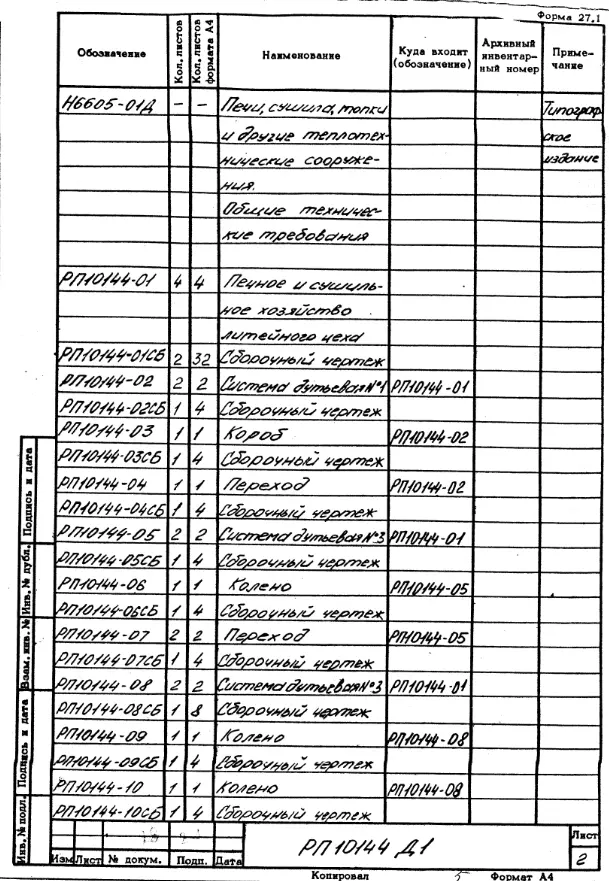 Форма 27.1
Обозначение Кол. листов Кол. листов формата А4 Наименование Куда входит (обозначение) Архивный инвентарный номер Примечание
Н6605-01Д — — Печи, сушила, топки Типограф
и другие теплотех- ское
нические сооруже- издание
ния.
Общие техничес-
кие требования
РП10144-01 4 4 Печное и сушиль-
ное хозяйство
литейного цеха
РП10144-01СБ 2 32 Сборочный чертеж
РП10144-02 2 2 Система дутьевая №1 РП10144-01
РП10144-02СБ 1 4 Сборочный чертеж
РП10144-03 1 1 Короб РП10144-02
РП10144-03СБ 1 4 Сборочный чертеж
РП10144-04 1 1 Переход РП10144-02
РП10144-04СБ 1 4 Сборочный чертеж
РП10144-05 2 2 Система дутьевая №3 РП10144-01
РП10144-05СБ 1 4 Сборочный чертеж
РП10144-06 1 1 Колено РП10144-05
РП10144-06СБ 1 4 Сборочный чертеж
РП10144-07 2 2 Переход РП10144-05
РП10144-07СБ 1 4 Сборочный чертеж
РП10144-08 2 2 Система дутьевая №3 РП10144-01
РП10144-08СБ 1 8 Сборочный чертеж
РП10144-09 1 1 Колено РП10144-08
РП10144-09СБ 1 4 Сборочный чертеж
РП10144-10 1 1 Колено РП10144-08
РП10144-10СБ 1 4 Сборочный чертеж
Подпись и дата
Инв. № дубл.
Взам. инв. №
Подпись и дата
Инв. № подл.
Изм Лист № докум. Подп. Дата
РП 10144 Д1
Лист
2
Копировал Формат А4